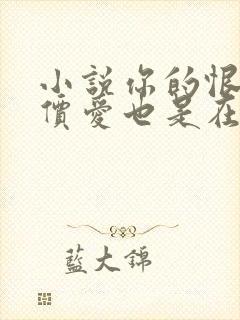 小說你的恨
價愛也是在
藍大錦